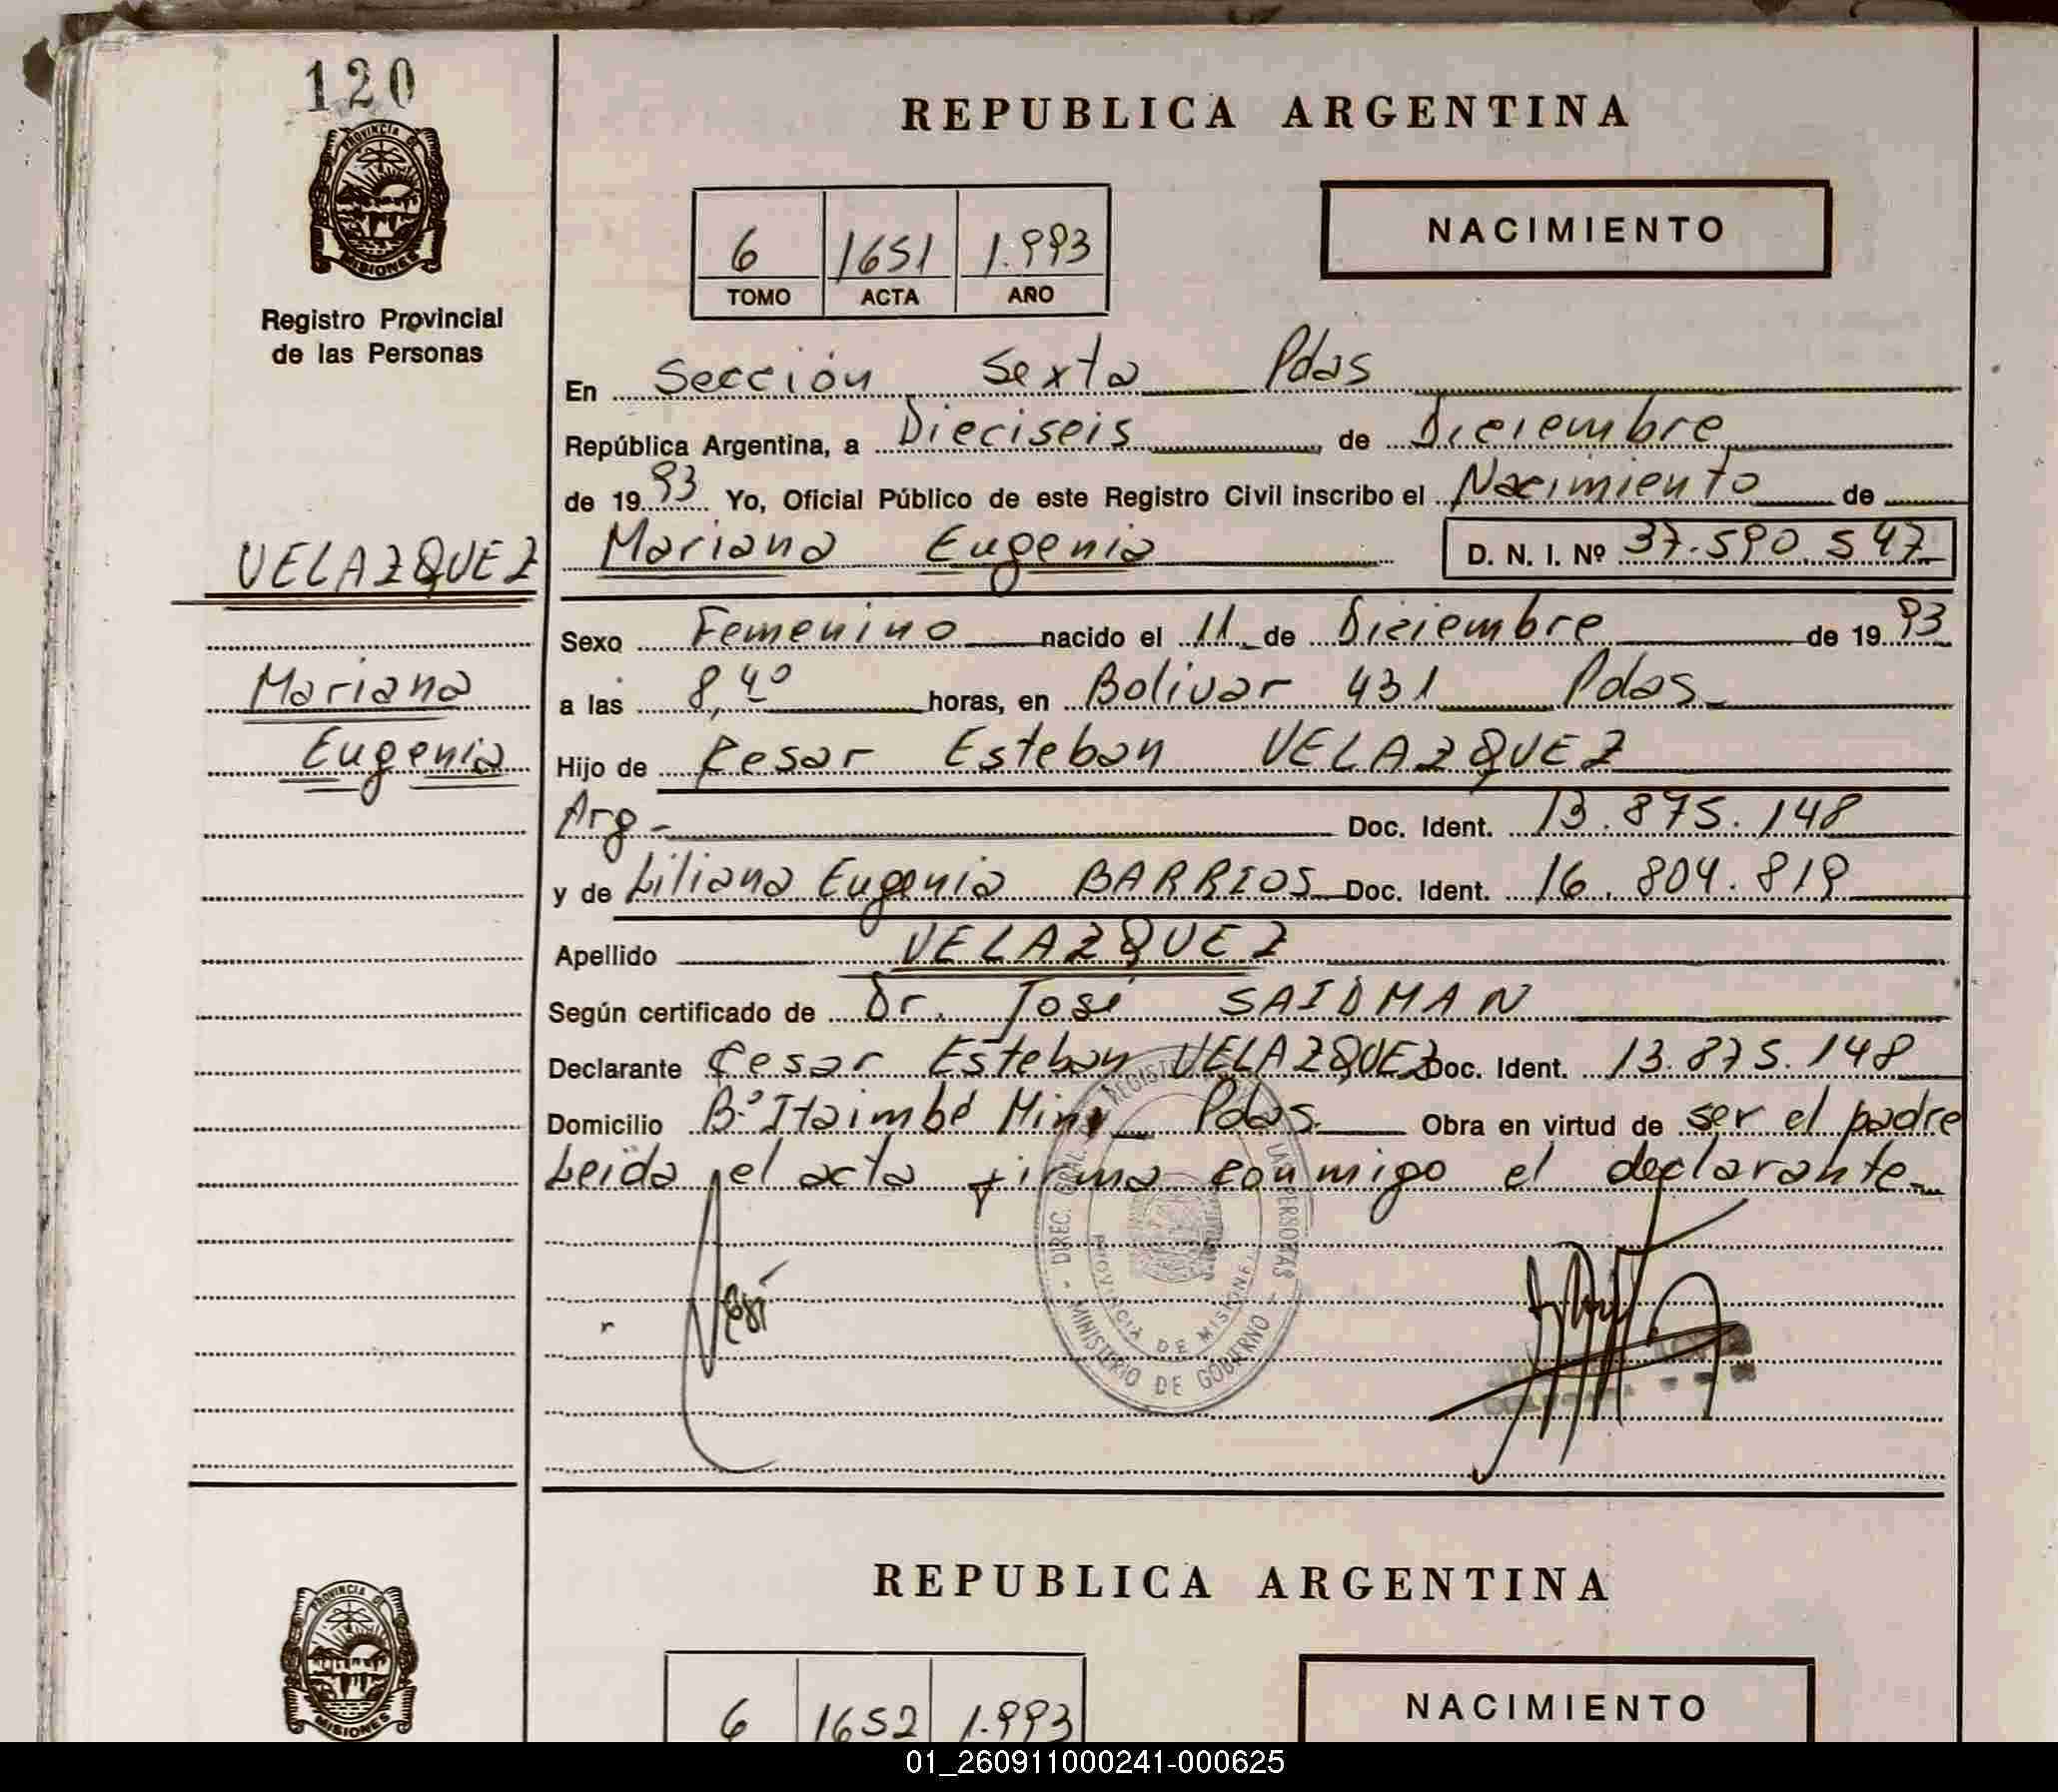 120
REPUBLICA ARGENTINA
PROVINCIA DE
MISIONES
Registro Provincial
de las Personas
6 1651 1.993
TOMO ACTA AÑO
NACIMIENTO
En Sección Sexta Pdas
República Argentina, a Dieciseis, de Diciembre
de 1993 Yo, Oficial Público de este Registro Civil inscribo el Nacimiento de
VELAZQUEZ
Mariana Eugenia D. N. I. Nº 37.590.547
Sexo Femenino nacido el 11 de Diciembre de 1993
Mariana
a las 8,40 horas, en Bolivar 431 Pdas
Eugenia
Hijo de Cesar Esteban VELAZQUEZ
Arg- Doc. Ident. 13.875.148
y de Liliana Eugenia BARRIOS Doc. Ident. 16.804.819
Apellido VELAZQUEZ
Según certificado de Dr. José SAIDMAN
Declarante Cesar Esteban VELAZQUEZ Doc. Ident. 13.875.148
Domicilio B.º Itaimbé Mini Pdas. Obra en virtud de ser el padre
Leida el acta firma conmigo el declarante
DIREC. GRAL. REGIST LAS PERSONAS
PROVINCIA DE MISIONES
MINISTERIO DE GOBIERNO
REPUBLICA ARGENTINA
PROVINCIA DE
MISIONES
6 1652 1.993
NACIMIENTO
01_260911000241-000625